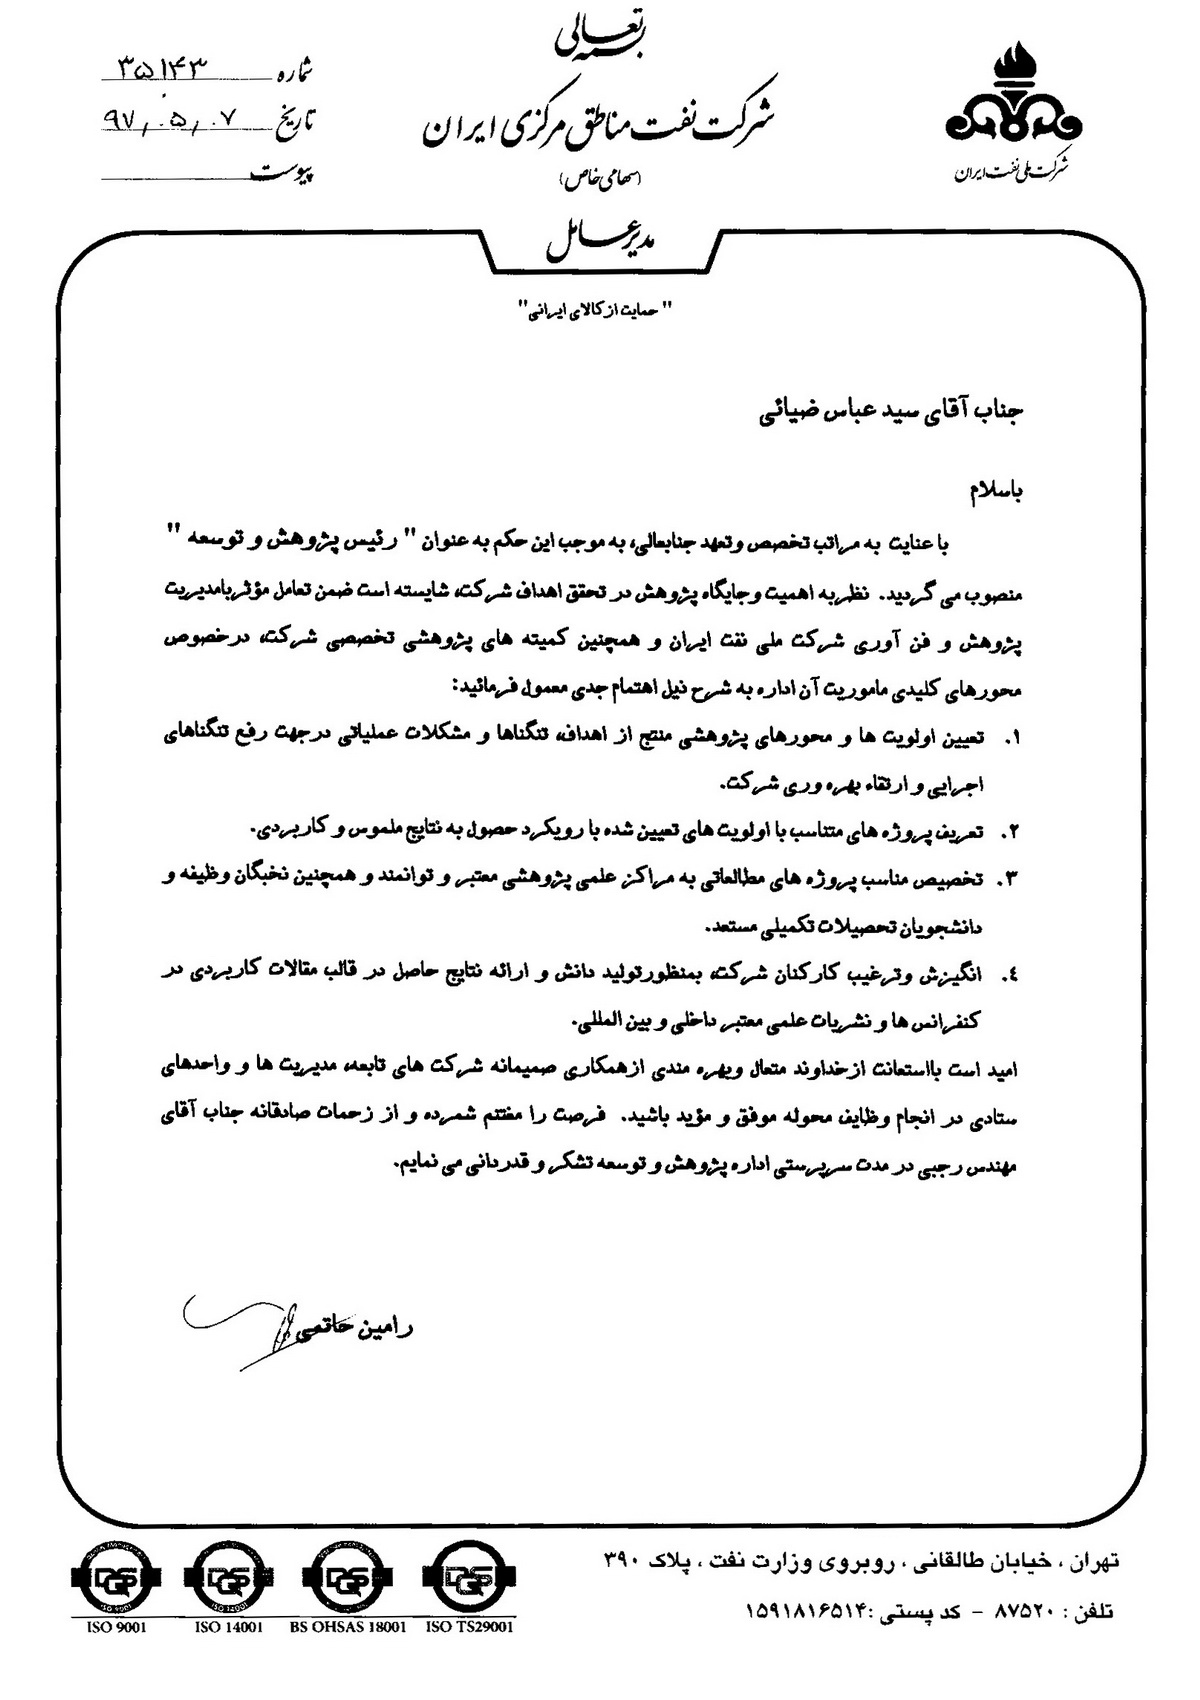 بسمه تعالی
شرکت نفت مناطق مرکزی ایران
(سهامی خاص)
مدیر عامل
شرکت ملی نفت ایران
شماره ۳۵۱۴۳
تاریخ ۹۷/۰۵/۰۷
پیوست
" حمایت از کالای ایرانی"
جناب آقای سید عباس ضیائی
باسلام
با عنایت به مراتب تخصص و تعهد جنابعالی، به موجب این حکم به عنوان " رئیس پژوهش و توسعه "
منصوب می گردید. نظر به اهمیت و جایگاه پژوهش در تحقق اهداف شرکت، شایسته است ضمن تعامل مؤثر با مدیریت
پژوهش و فن آوری شرکت ملی نفت ایران و همچنین کمیته های پژوهشی تخصصی شرکت، در خصوص
محورهای کلیدی ماموریت آن اداره به شرح ذیل اهتمام جدی معمول فرمائید:
۱. تعیین اولویت ها و محورهای پژوهشی منتج از اهداف، تنگناها و مشکلات عملیاتی در جهت رفع تنگناهای
اجرایی و ارتقاء بهره وری شرکت.
۲. تعریف پروژه های متناسب با اولویت های تعیین شده با رویکرد حصول به نتایج ملموس و کاربردی.
۳. تخصیص مناسب پروژه های مطالعاتی به مراکز علمی پژوهشی معتبر و توانمند و همچنین نخبگان وظیفه و
دانشجویان تحصیلات تکمیلی مستعد.
٤. انگیزش و ترغیب کارکنان شرکت، بمنظور تولید دانش و ارائه نتایج حاصل در قالب مقالات کاربردی در
کنفرانس ها و نشریات علمی معتبر داخلی و بین المللی.
امید است بااستعانت از خداوند متعال و بهره مندی از همکاری صمیمانه شرکت های تابعه، مدیریت ها و واحدهای
ستادی در انجام وظایف محوله موفق و مؤید باشید. فرصت را مغتنم شمرده و از زحمات صادقانه جناب آقای
مهندس رجبی در مدت سرپرستی اداره پژوهش و توسعه تشکر و قدردانی می نمایم.
رامین حاتمی
تهران ، خیابان طالقانی ، روبروی وزارت نفت ، پلاک ۳۹۰
تلفن : ۸۷۵۲۰ - کد پستی :۱۵۹۱۸۱۶۵۱۴
DQS DQS DQS DQS
ISO 9001 ISO 14001 BS OHSAS 18001 ISO TS29001